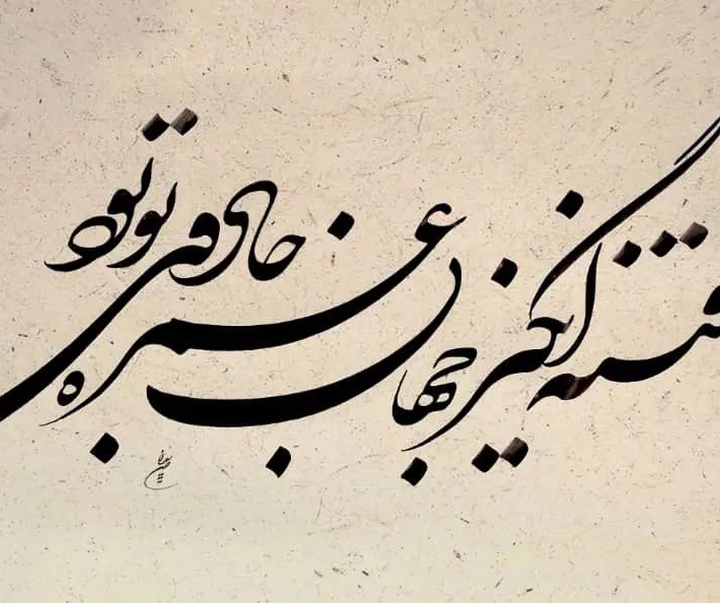 فتنه انگیز جهان غمزه جادوی تو بود